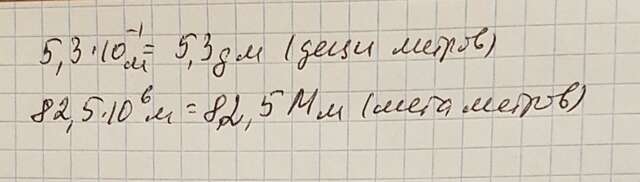 5,3·10⁻¹м = 5,3дм (деци метров)
82,5·10⁶м = 82,5Мм (мегаметров)